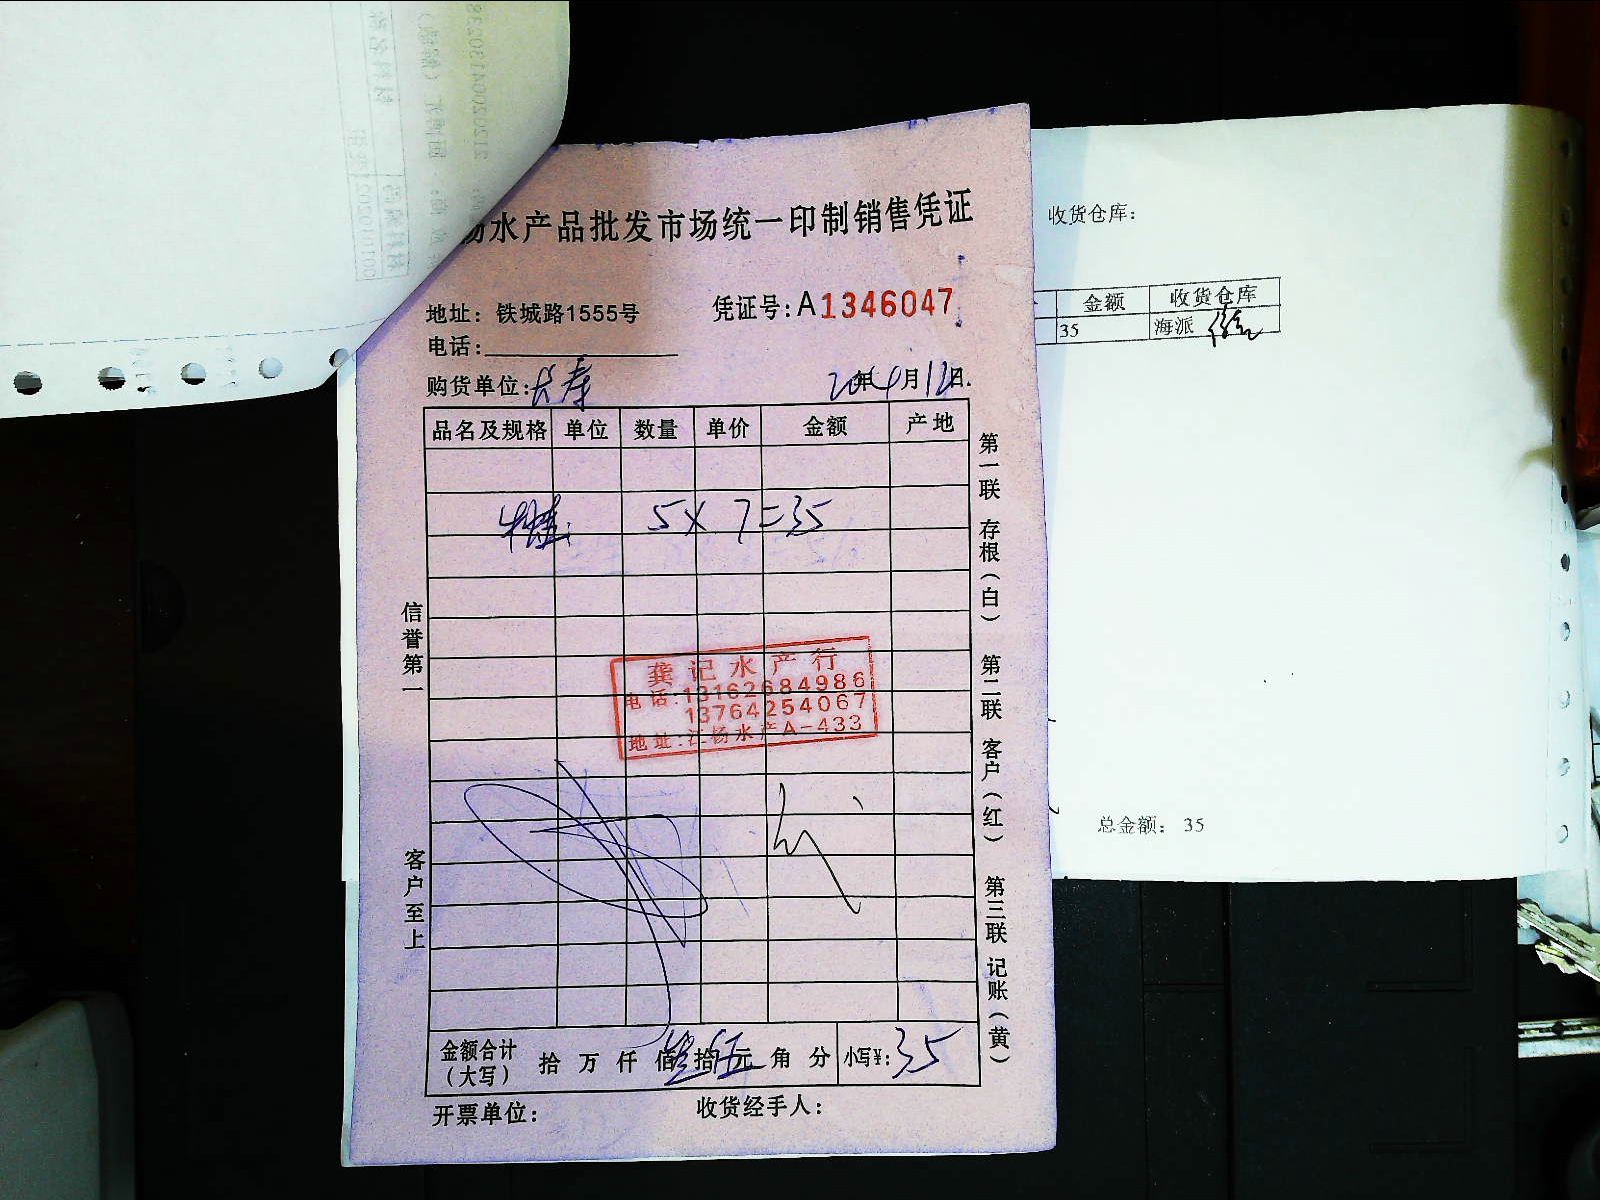 杨水产品批发市场统一印制销售凭证
地址：铁城路1555号
凭证号：A1346047
电话：
购货单位：长寿
年4月12日
品名及规格 单位 数量 单价 金额 产地
5×7=35
龚记水产行
电话：13162684986
13764254067
地址：江杨水产A-433
信誉第一
客户至上
第一联 存根（白） 第二联 客户（红） 第三联 记账（黄）
金额合计（大写） 拾万仟佰叁拾伍元角分 小写¥：35
开票单位：
收货经手人：
收货仓库：
金额 收货仓库
35 海派
总金额： 35